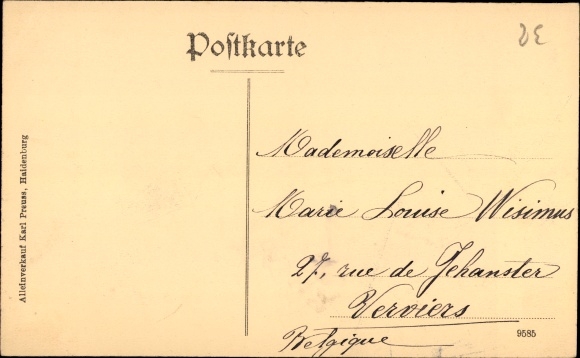 Postkarte
Alleinverkauf Karl Preuss, Haidenburg
Mademoiselle
Marie Louise Wisimus
27, rue de Jehanster
Verviers
Belgique
9585